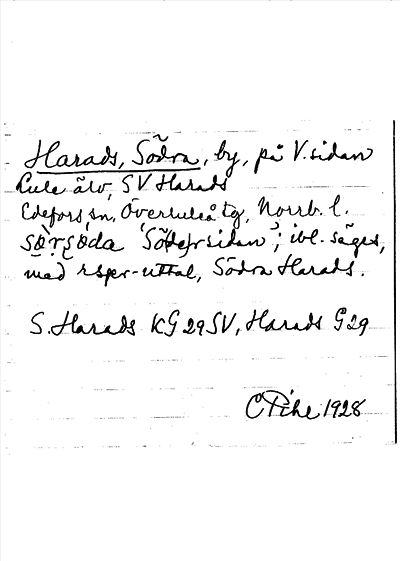 Harads, Södra, by, på V. sidan
Lule älv, SV Harads
Edefors sn, Överluleå tg, Norrb. l.
'Söder sidan'; ibl. säges,
med rspr-uttal, Södra Harads.
S. Harads KG 29 SV, Harads G 29
C Pihl 1928